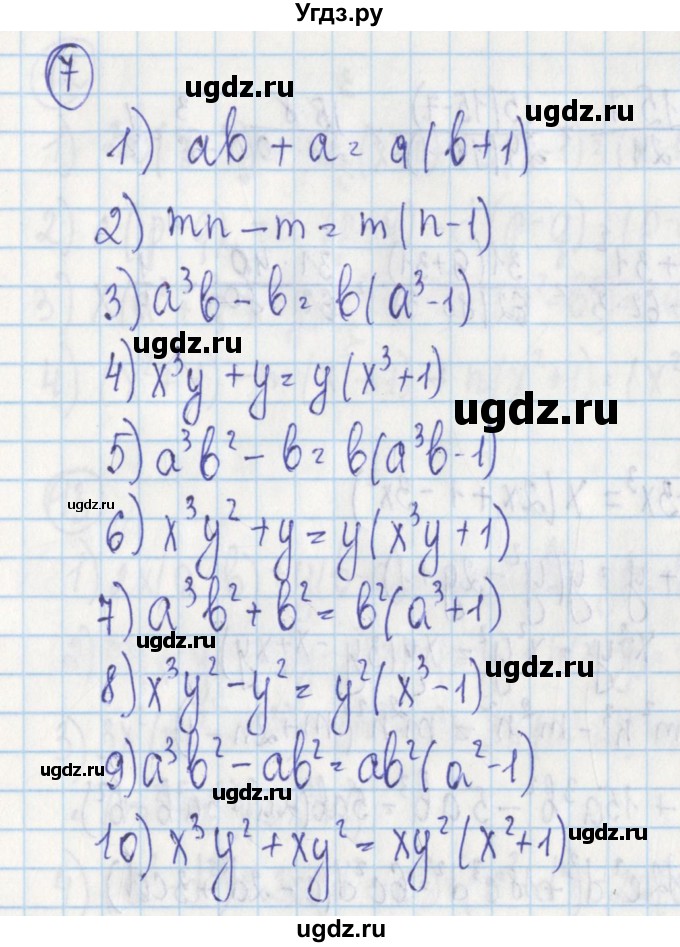 Угдз.ру
7
ugdz.ru ugdz.ru
1) ab + a = a(b+1)
2) mn - m = m(n-1)
3) a³b - b = b(a³-1)
ugdz.ru
4) x³y + y = y(x³+1)
ugdz.ru
5) a³b² - b = b(a³b-1)
ugdz.ru
6) x³y² + y = y(x³y+1)
7) a³b² + b² = b²(a³+1)
ugdz.ru
ugdz.ru
8) x³y² - y² = y²(x³-1)
ugdz.ru
9) a³b² - ab² = ab²(a²-1)
ugdz.ru
10) x³y² + xy² = xy²(x²+1)
ugdz.ru
ugdz.ru